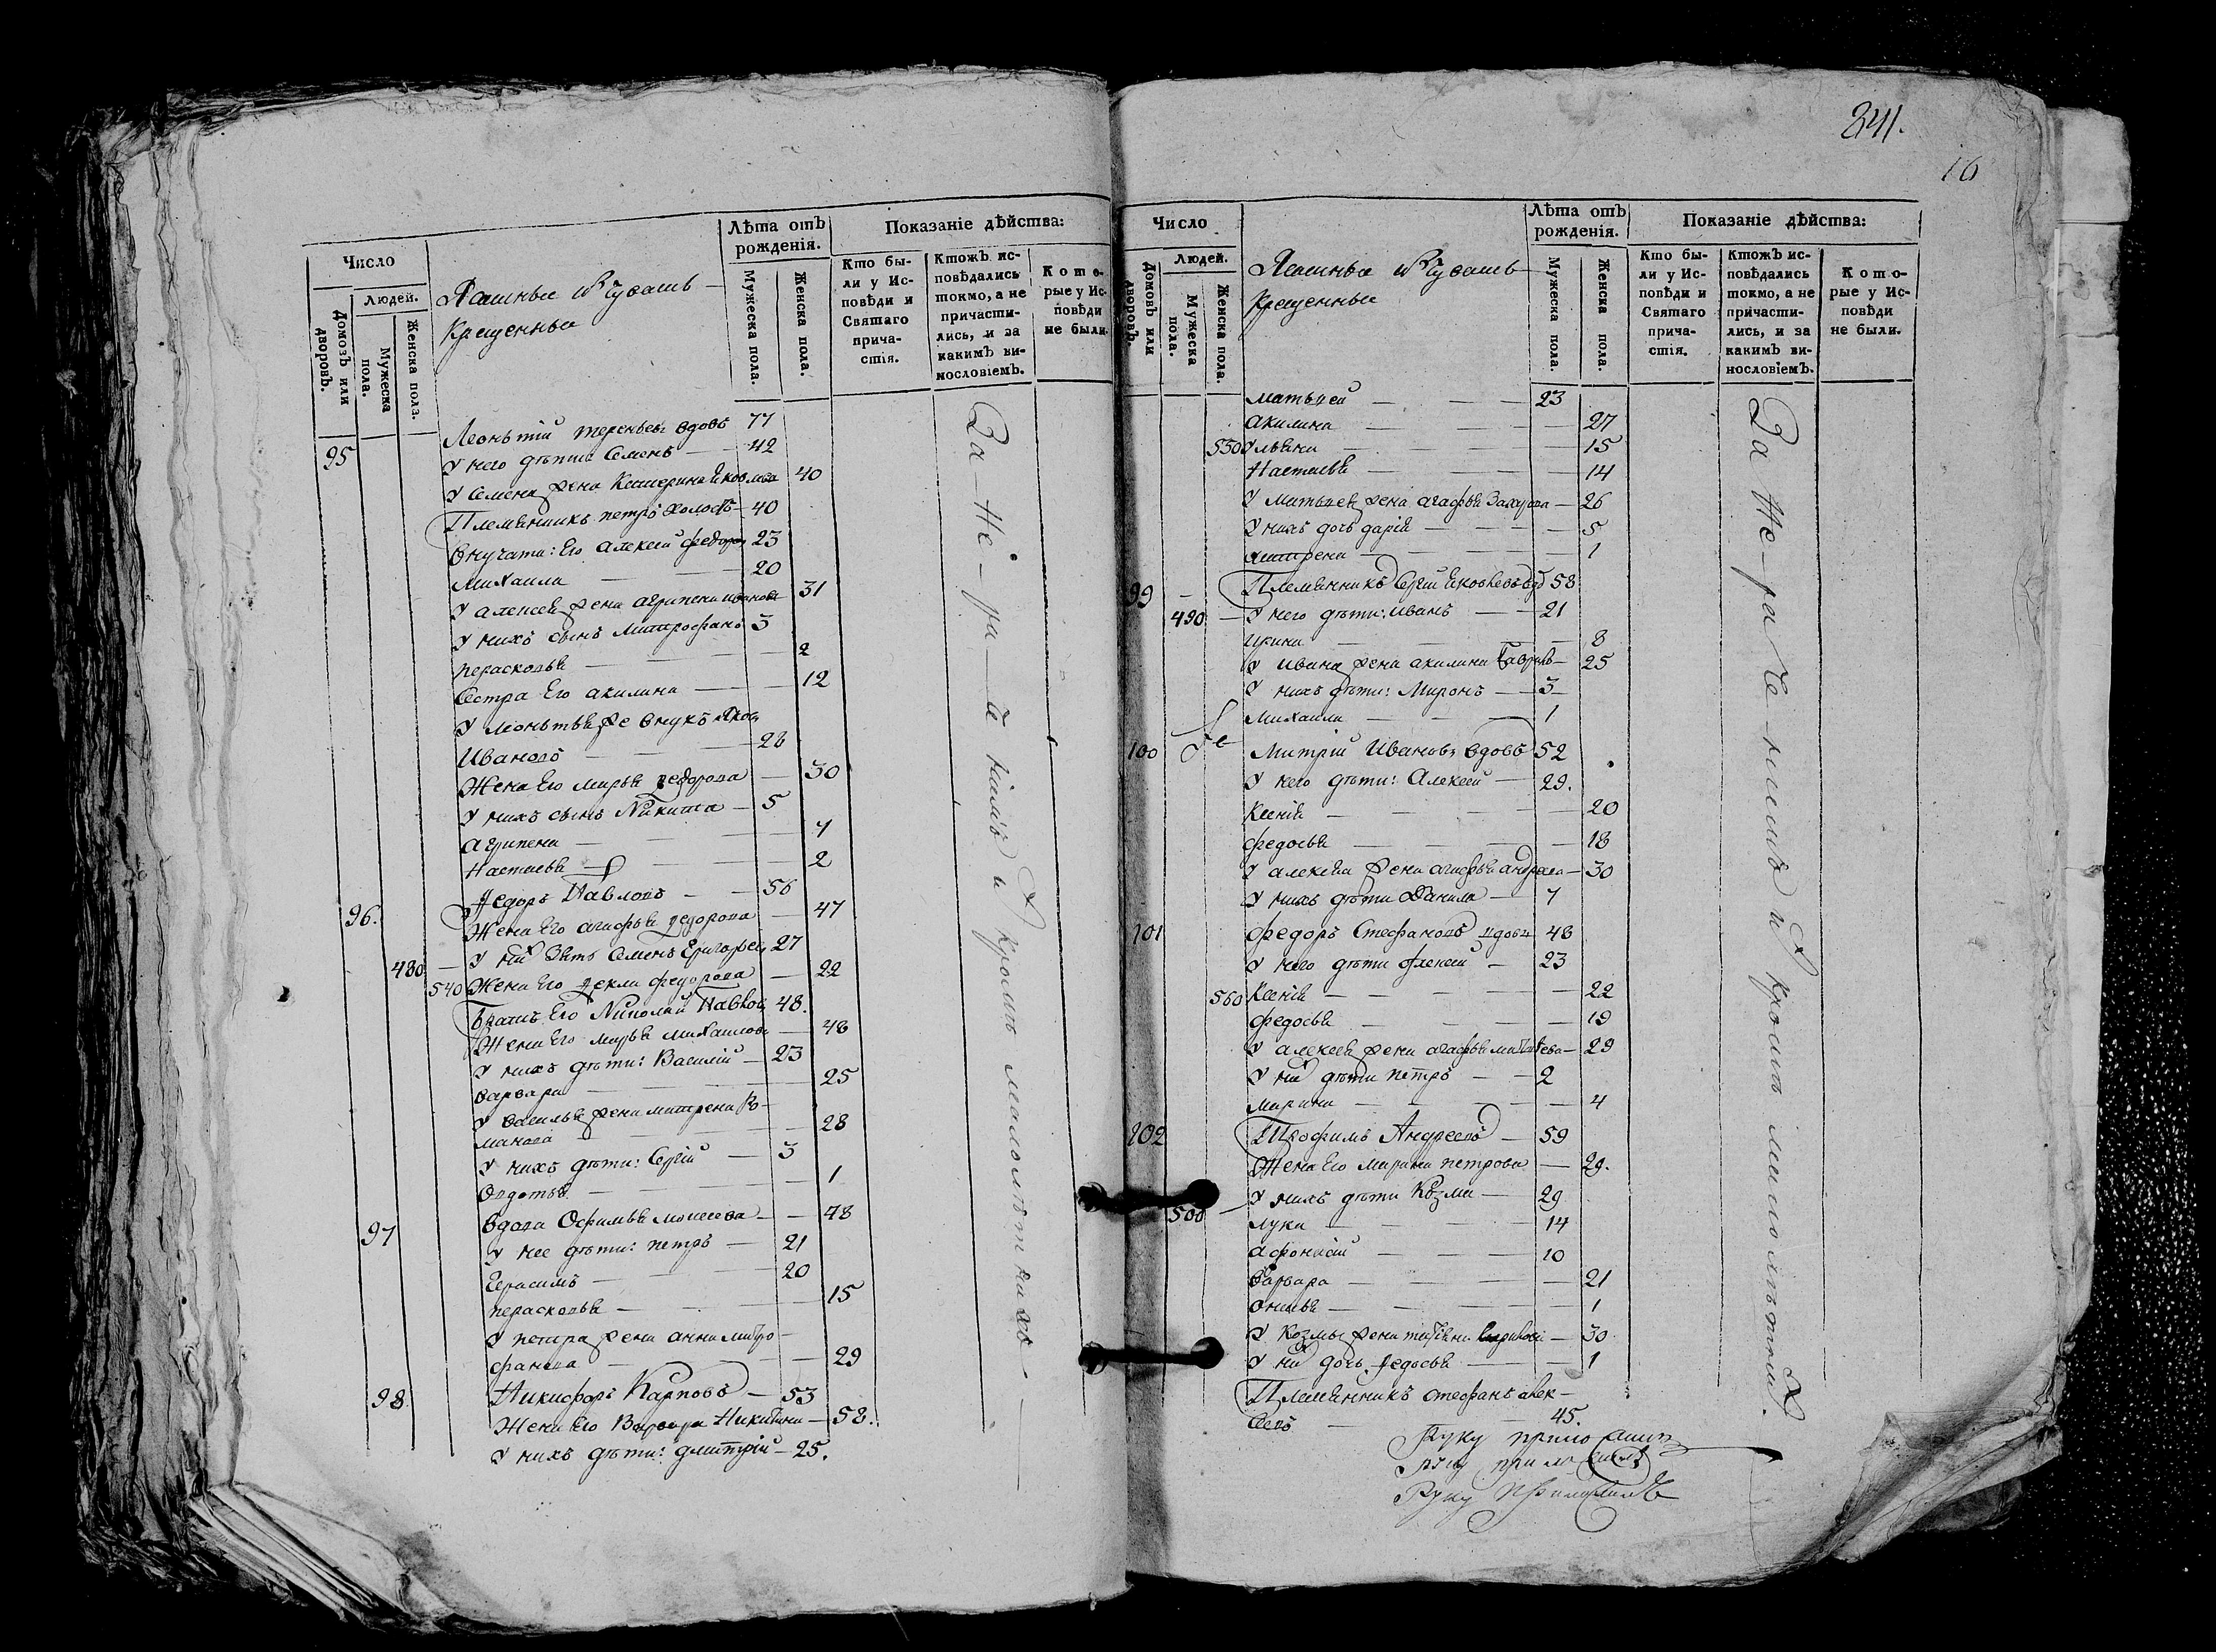 841.
16
Число
Людей.
Домовъ или дворовъ.
Мужеска пола.
Женска пола.
Крещенныя
Лѣта отъ рожденія.
Мужеска пола.
Женска пола.
Показаніе дѣйства:
Кто бы-
ли у Ис-
повѣди и
Святаго
прича-
стія.
Ктожъ ис-
повѣдались
токмо, а не
причасти-
лись, и за
какимъ ви-
нословіемъ.
Кото-
рые у Ис-
повѣди
не были.
Леонътій терентьевъ вдовъ 77
95 У него дѣти: Семенъ — 42
У Семена жена Катерина Яковлева 40
Племянникъ петръ холостъ — 40
Внучата: Его алексей федоровъ 23
Михаила — 20
У алексея жена агрипена иванова 31
У нихъ сынъ Митрофанъ 3
перасковья — 2
Сестра Его акилина — 12
У леонътья же внукъ
Ивановъ — 26
Жена Его марья федорова — 30
У нихъ сынъ Никита — 5
агрипена — 7
Настасья — 2
96. Федоръ Павловъ — 56
Жена Его агафья федорова — 47
480 — У них зять Семенъ Григорьев 27
540 Жена Его фекла федорова — 22
братъ Его Николай Павлов 48.
Жена Его марья михаилова — 48
У нихъ дѣти: Василий — 23
варвара — 25
У василья жена матрена Ро-
манова — 28
У нихъ дѣти: Сергій — 3
Овдотья — 1
97 вдова Офимья моисеева — 48
У нее дѣти: петръ — 21
Герасимъ — 20
перасковья — 15
У петра жена анна митро-
фанова — 29
98 Никифоръ Карповъ — 53
Жена Его Варвара Никитина — 58.
У нихъ дѣти: дмитрій — 25.
За — не — ра — че — ніемъ и кромѣ малолѣтнихъ
Число
Людей.
Домовъ или дворовъ.
Мужеска пола.
Женска пола.
Крещенныя
Лѣта отъ рожденія.
Мужеска пола.
Женска пола.
Показаніе дѣйства:
Кто бы-
ли у Ис-
повѣди и
Святаго
прича-
стія.
Ктожъ ис-
повѣдались
токмо, а не
причасти-
лись, и за
какимъ ви-
нословіемъ.
Кото-
рые у Ис-
повѣди
не были.
матвей — 23
акилина — 27
550 Ульяна — 15
Настасья — 14
У матвея жена агафья Захарова — 26
У нихъ дочь дарія — 5
матрена — 1
99 — Племянникъ Сергій Яковлевъ вдо 58
490 — У него дѣти: иванъ — 21
Ирина — 8
У ивана жена акилина Гаврил — 25
У нихъ дѣти: Миронъ — 3
Михаила — 1
100 Митрій Ивановъ вдовъ 52
У него дѣти: Алексей — 29.
Ксенія — 20
федосья — 18
У алексея жена агафья андреева — 30
У нихъ дѣти Данила — 7
101 Федоръ Стефановъ вдовъ 48
У него дѣти Алексей — 23
560 Ксенія — 22
федосья — 19
У алексея жена агафья матвеева — 29
У них дѣти петръ — 2
марина — 4
102 Трофимъ Андреевъ — 59
Жена Его марина петрова — 29.
У нихъ дѣти Козма — 29
500 — лука — 14
афонасій — 10
варвара — 21
— 1
У Козмы жена татьяна — 30
У них дочь федосья — 1
Племянникъ стефанъ алек-
сеевъ — 45.
За не — ра — че — ніемъ и кромѣ малолѣтних.
Руку приложилъ
Руку приложилъ
Руку приложилъ